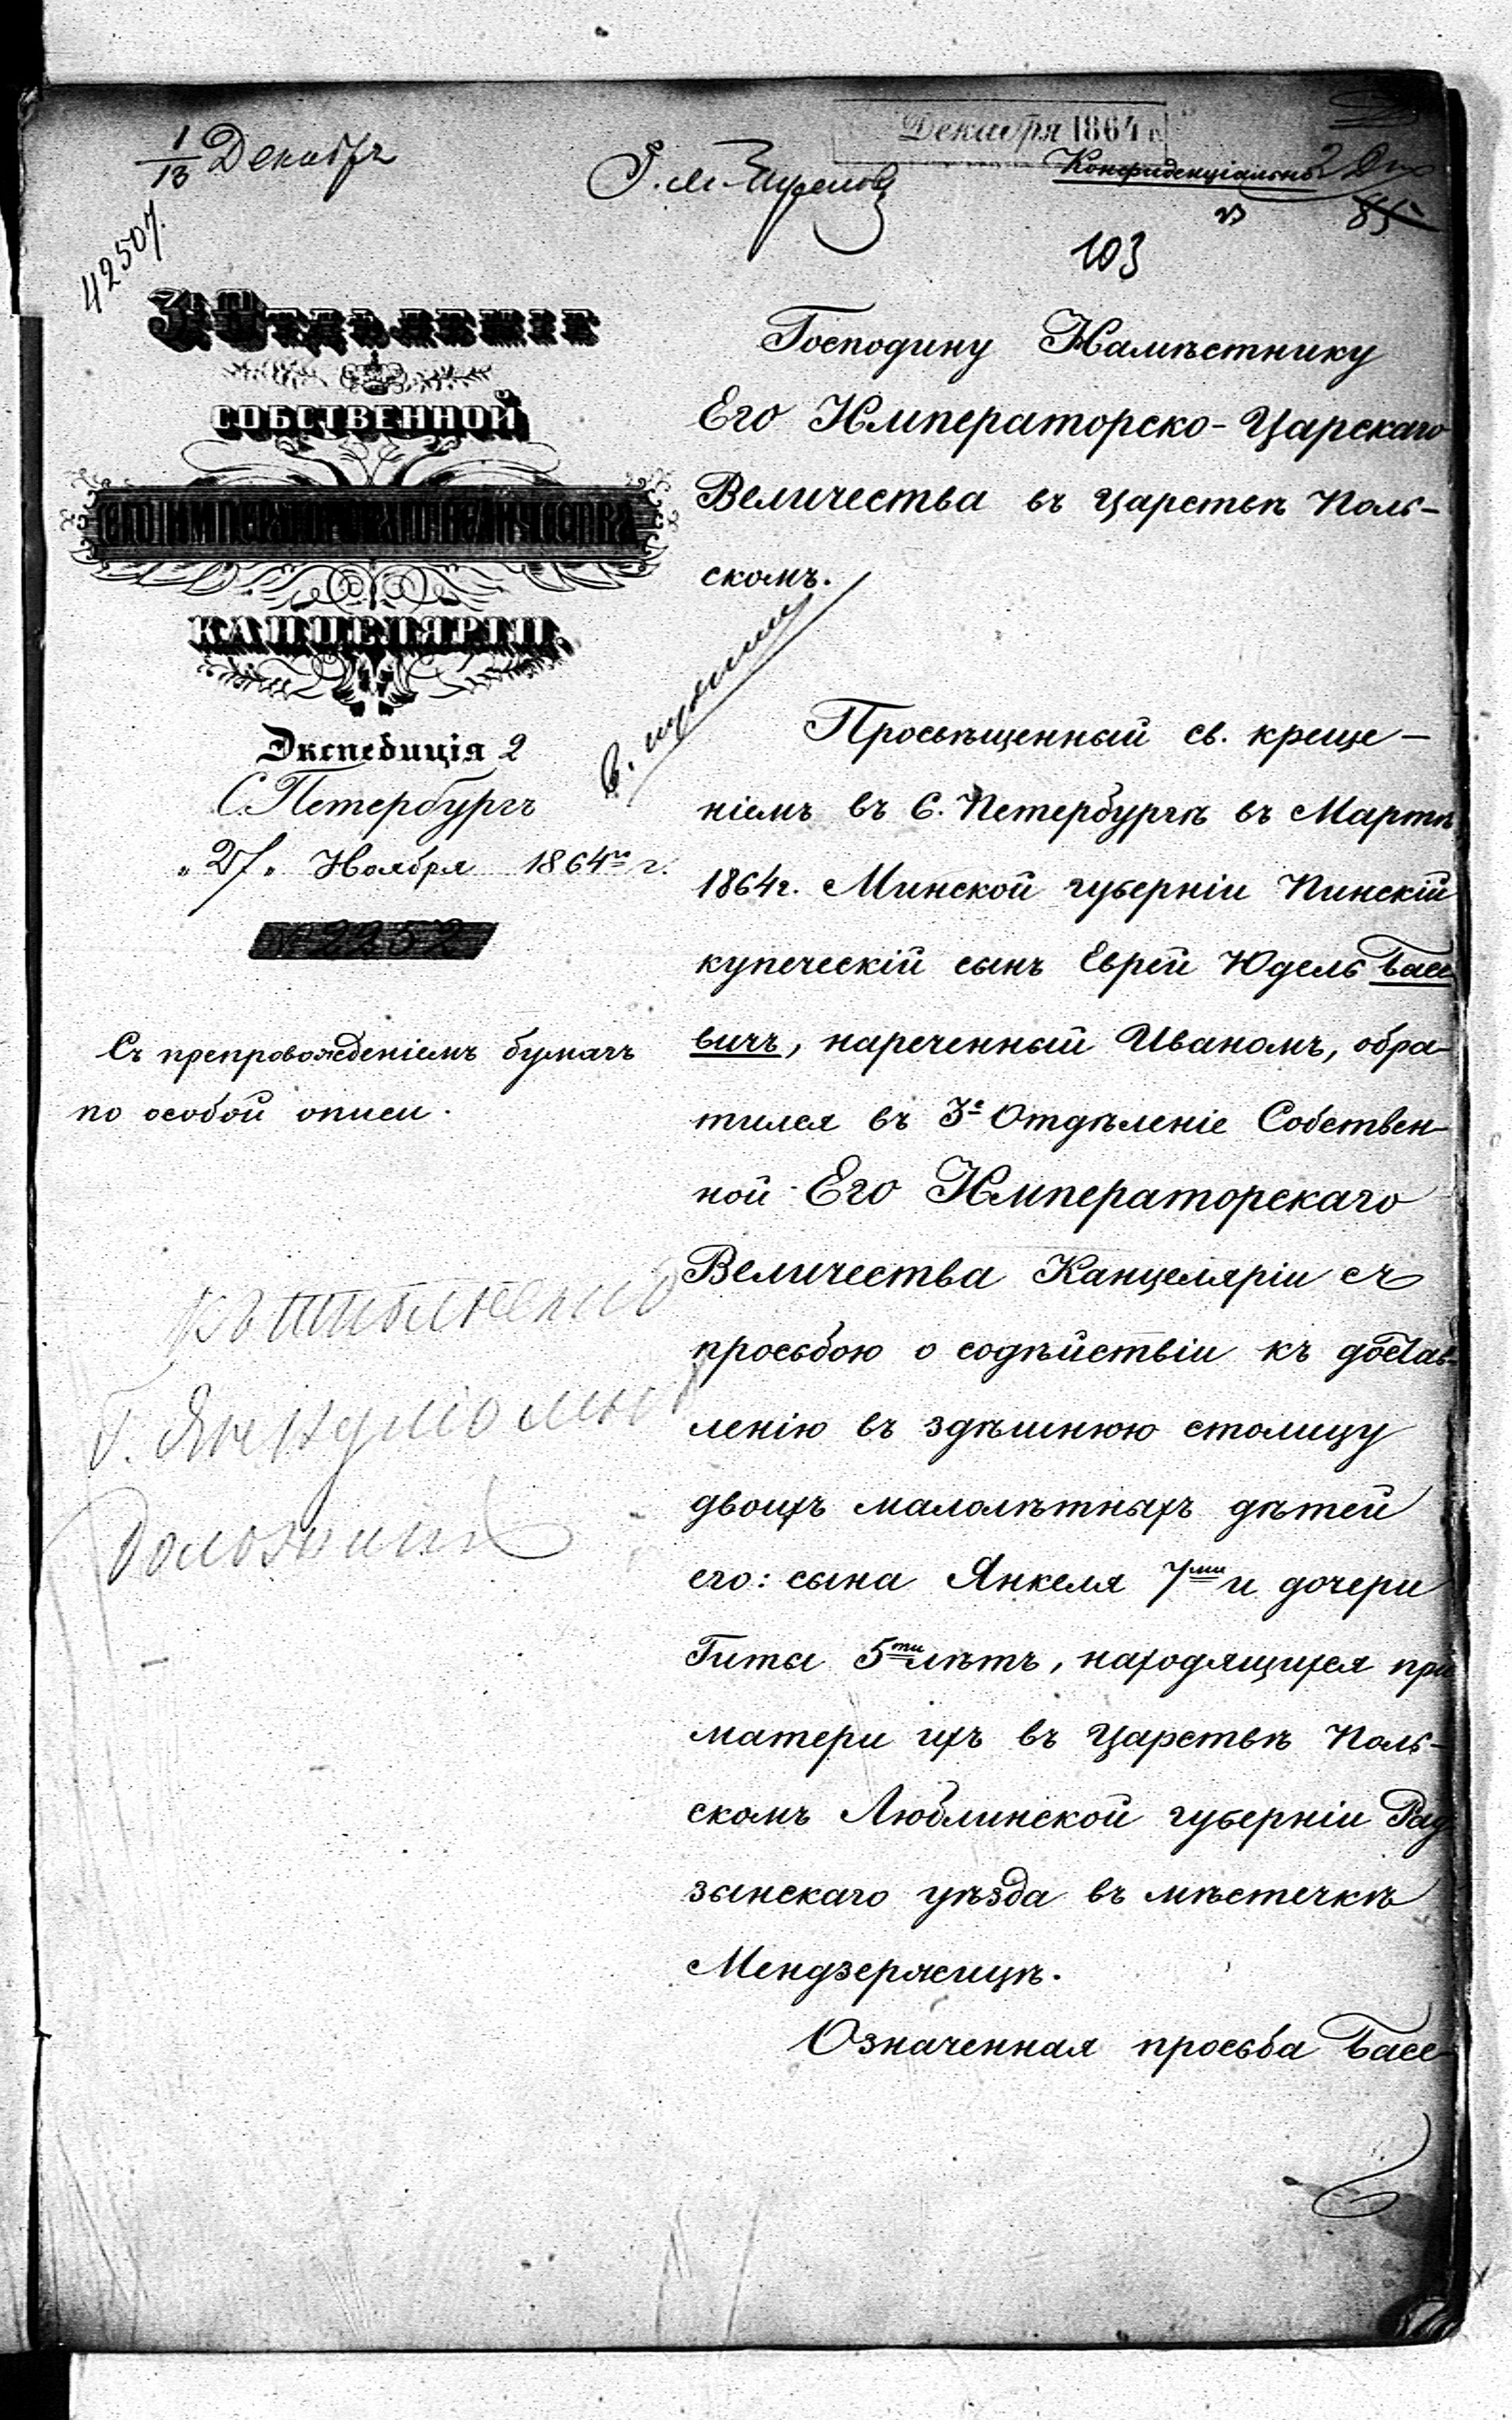 1/13 Декабрь
Декабря 1864 г.
Конфиденціально
85
103
42507.
3 Отдѣленіе
СОБСТВЕННОЙ
ЕГО ИМПЕРАТОРСКАГО ВЕЛИЧЕСТВА
КАНЦЕЛЯРІИ.
Экспедиція 2
С. Петербургъ
„27„ Ноября 1864го г.
№ 2252
Съ препровожденіемъ бумагъ
по особой описи.
Господину Намѣстнику
Его Императорско-Царскаго
Величества въ Царствѣ Поль-
скомъ.
Просвѣщенный св. креще-
ніемъ въ С. Петербургѣ въ Мартѣ
1864г. Минской губерніи Пинскій
купеческій сынъ Еврей Юдель Басе
вичъ, нареченный Иваномъ, обра-
тился въ 3е Отдѣленіе Собствен-
ной Его Императорскаго
Величества Канцеляріи съ
просьбою о содѣйствіи къ достав-
ленію въ здѣшнюю столицу
двоихъ малолѣтныхъ дѣтей
его: сына Янкеля 7ми и дочери
Гиты 5ти лѣтъ, находящихся при
матери ихъ въ Царствѣ Поль-
скомъ Люблинской губерніи Рад
зынскаго уѣзда въ мѣстечкѣ
Мендзержицѣ.
Означенная просьба Басе-